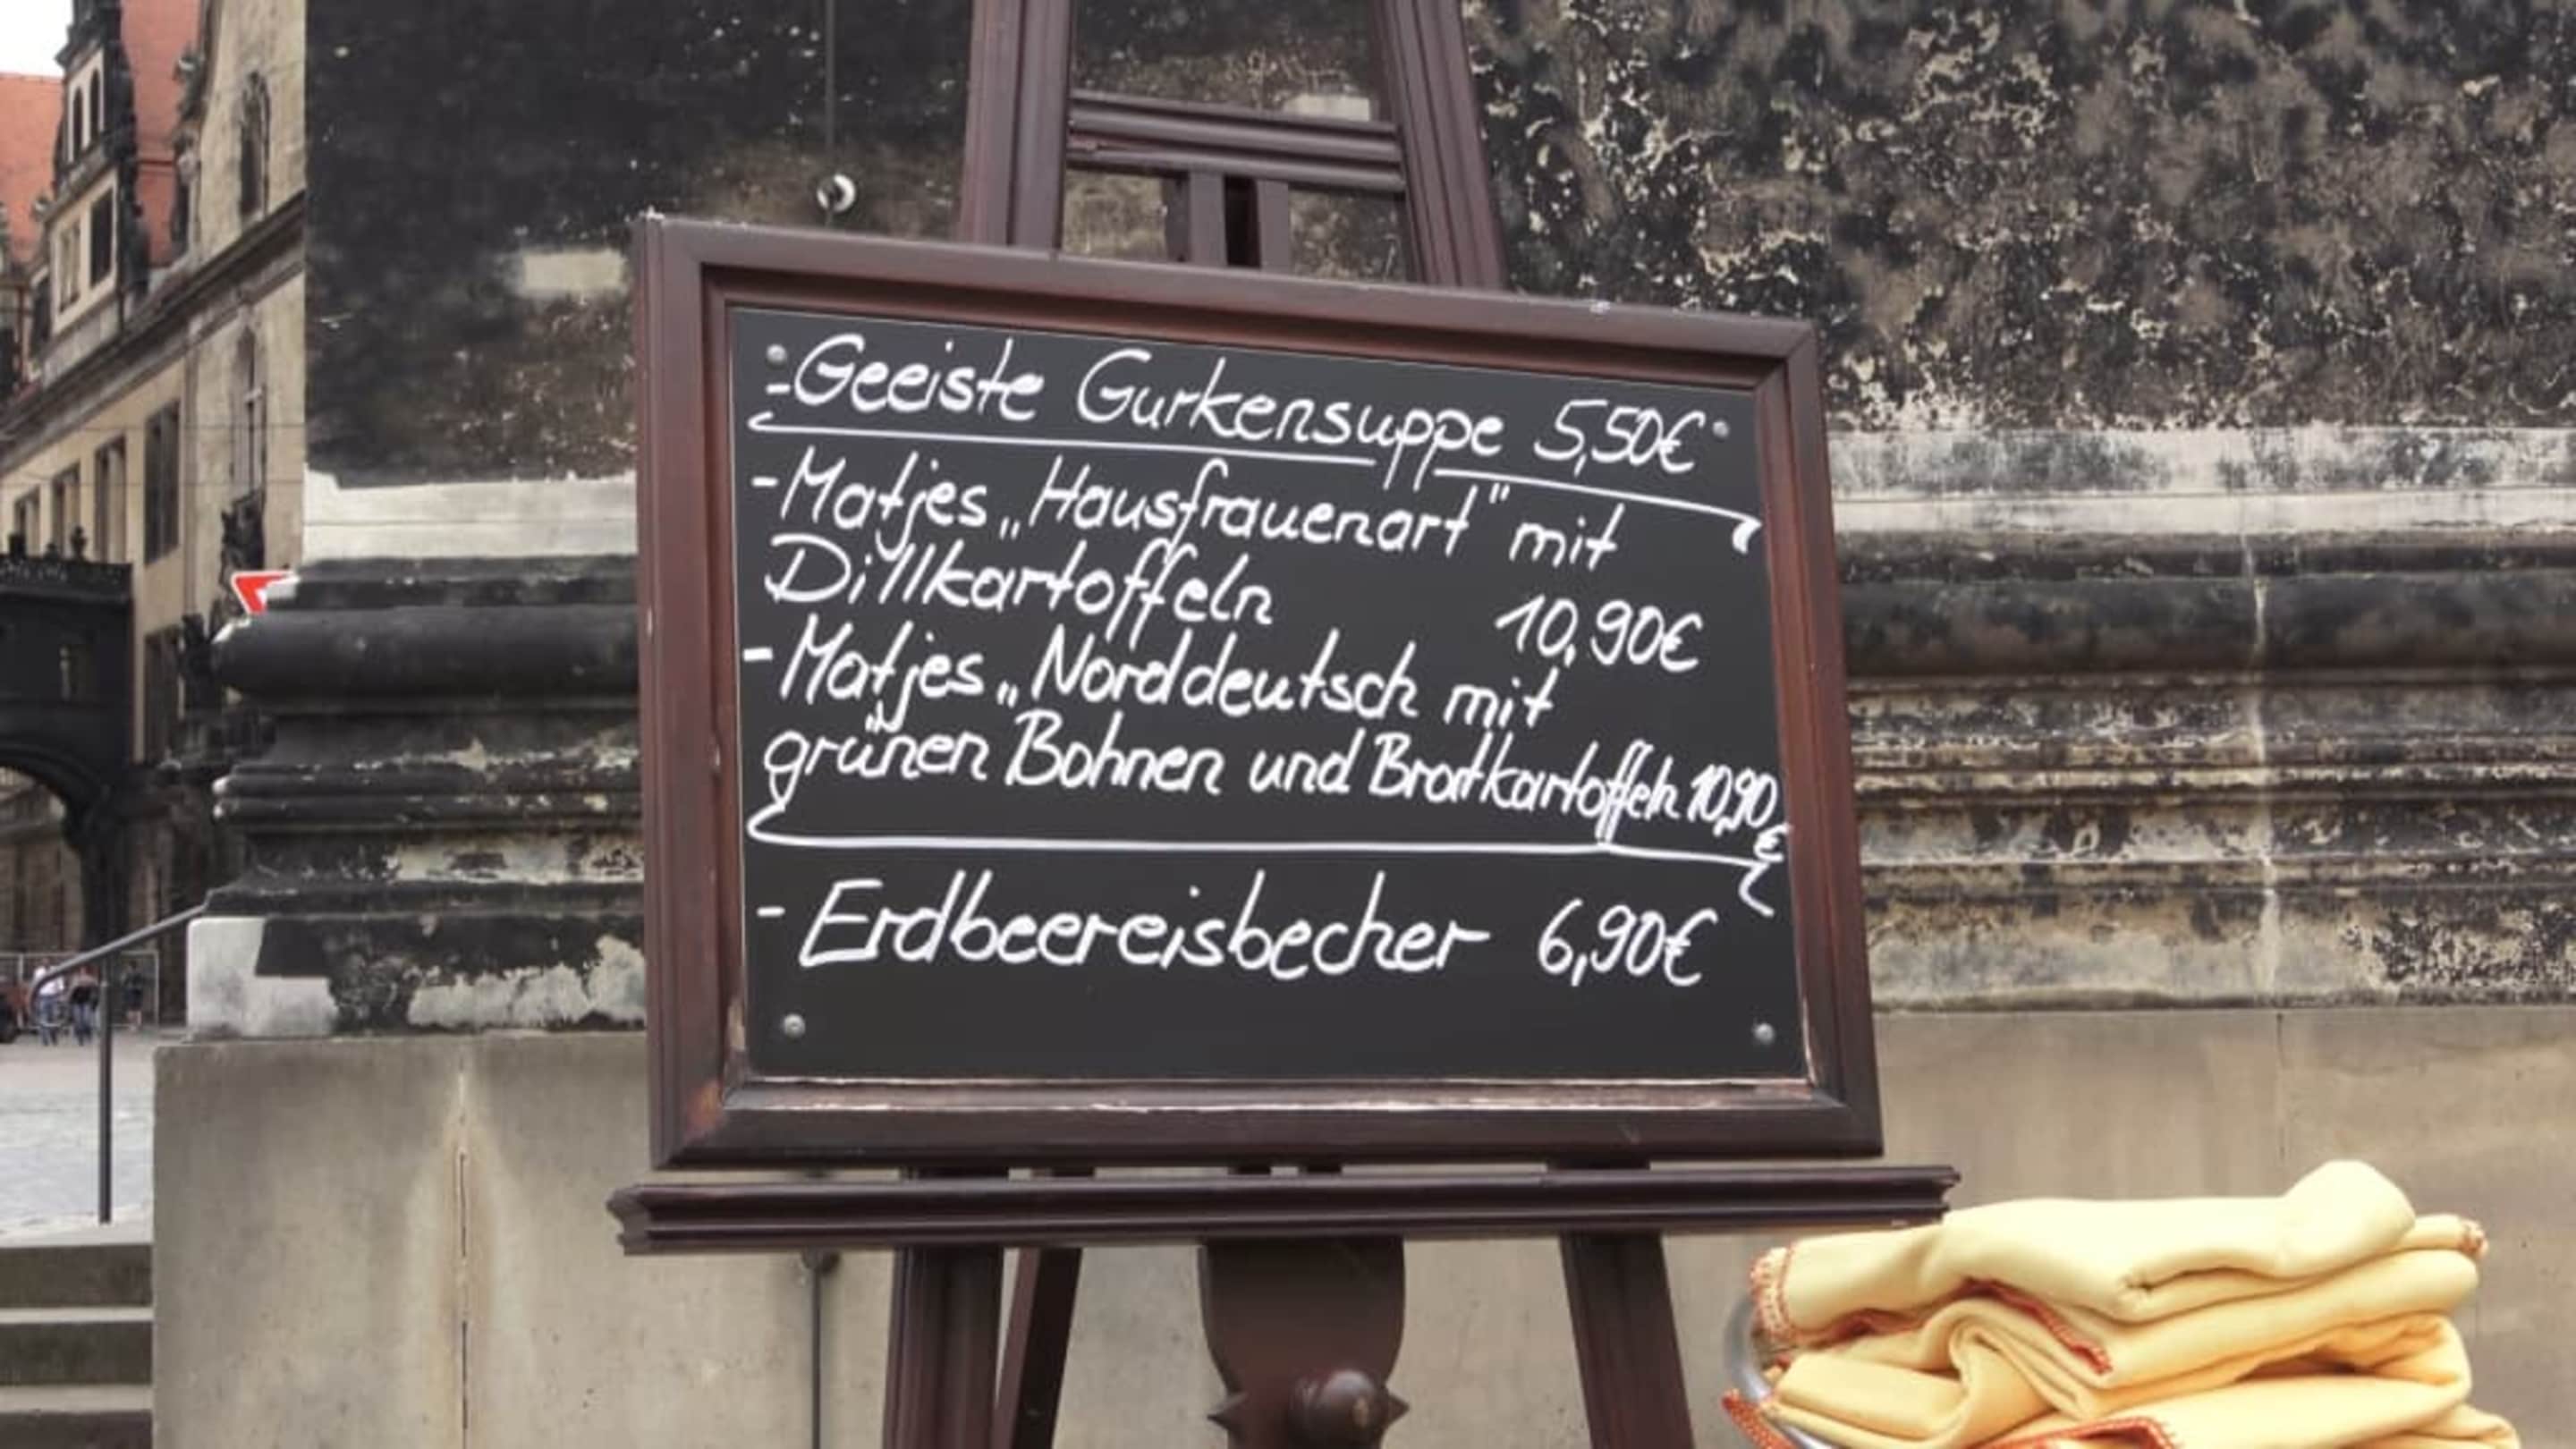 - Geeiste Gurkensuppe 5,50€
- Matjes „Hausfrauenart" mit
Dillkartoffeln 10,90€
- Matjes „Norddeutsch mit
grünen Bohnen und Bratkartoffeln 10,90
€
- Erdbeereisbecher 6,90€